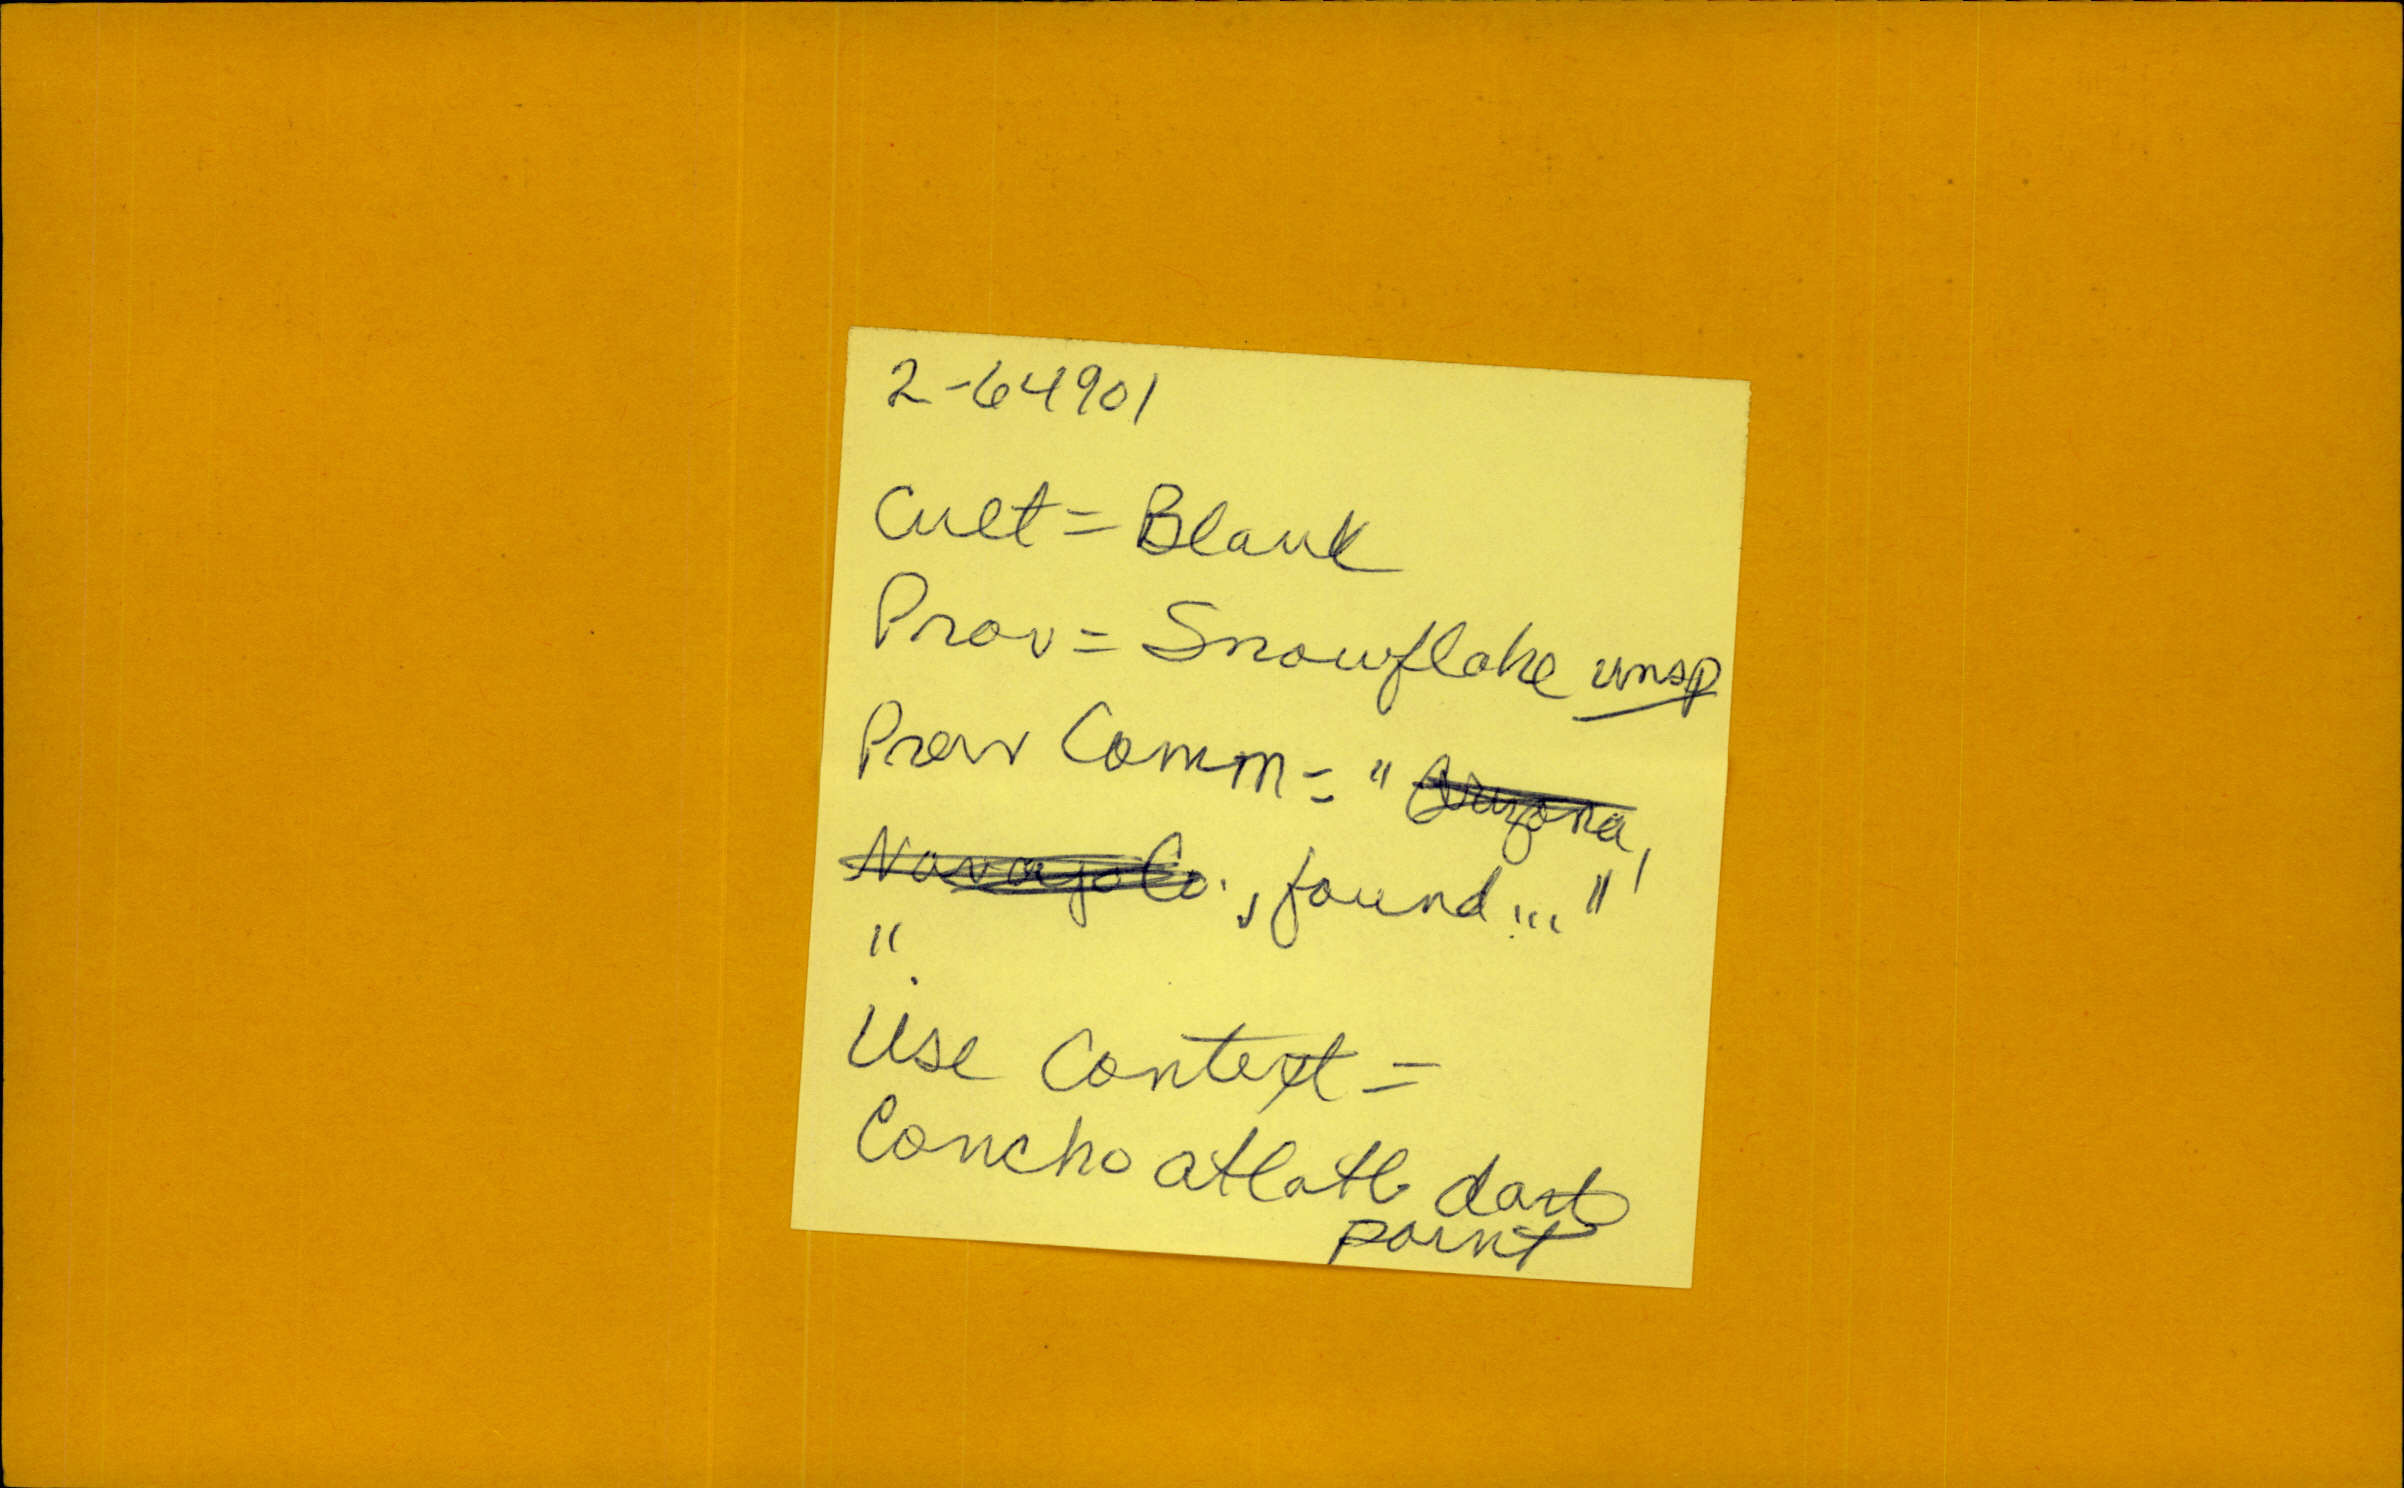 2-64901
Cult = Blank
Prov = Snowflake unsp
Prov Comm = " Arizona,
Navajo Co., found ... "
"
Use Context =
Concho atlatl dart
point